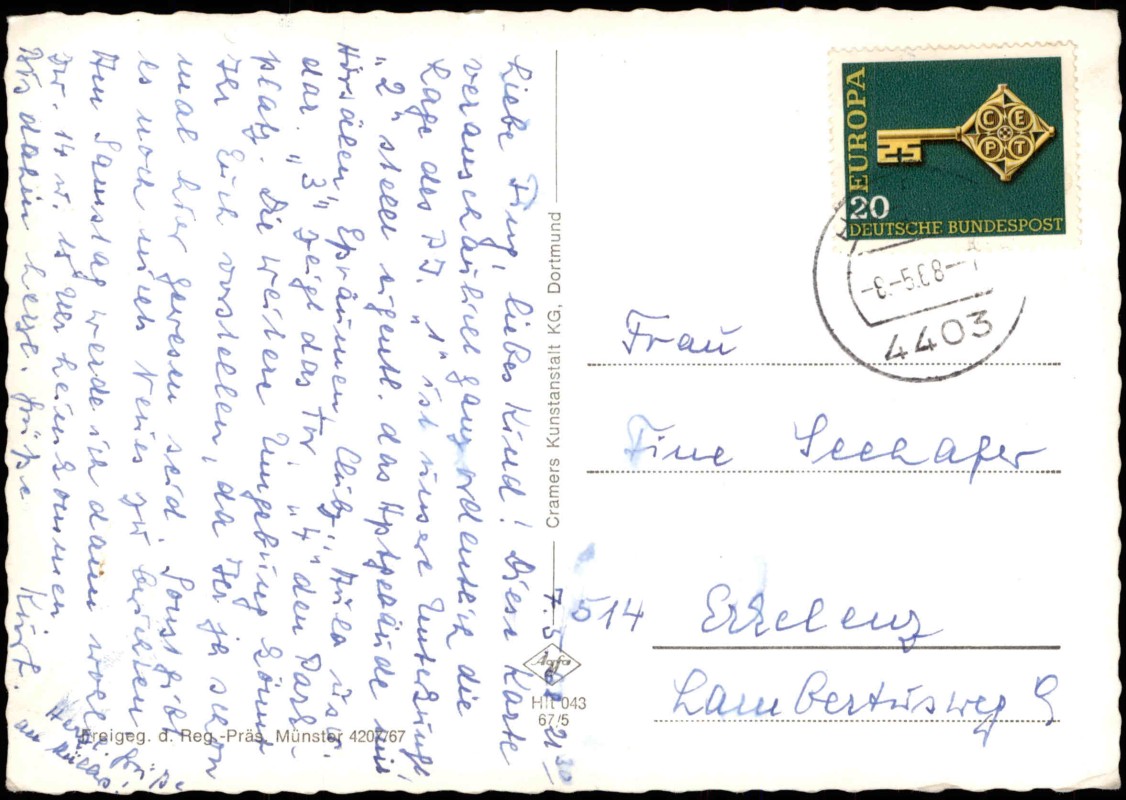 Liebe Fing, liebes Kind! Diese Karte
veranschaulicht ganz ordentlich die
Lage des JJ. „1" ist unsere Unterkunft
„2" stellt eigentl. das Hptgebäude mit
Hörsälen, Eßräumen, Club, Aula usw.
dar. „3" zeigt das Tor. „4" den Park-
platz. Die weitere Umgebung könnt
Ihr Euch vorstellen, da Ihr ja schon
mal hier gewesen seid. Sonst gibt
es noch nichts Neues zu berichten
Am Samstag werde ich dann wohl
zw. 14 u. 15 Uhr heimkommen
Bis dahin herzl. Grüße
Kurt.
Herzl. Grüße
7.5.68 21 30
Cramers Kunstanstalt KG, Dortmund
Agfa
Hlt 043
67/5
Freigeg. d. Reg.-Präs. Münster 4207/67
EUROPA
CEPT
20
DEUTSCHE BUNDESPOST
-8.-5.68-
4403
Frau
Fine Seehafer
514 Erkelenz
Lambertusweg 9